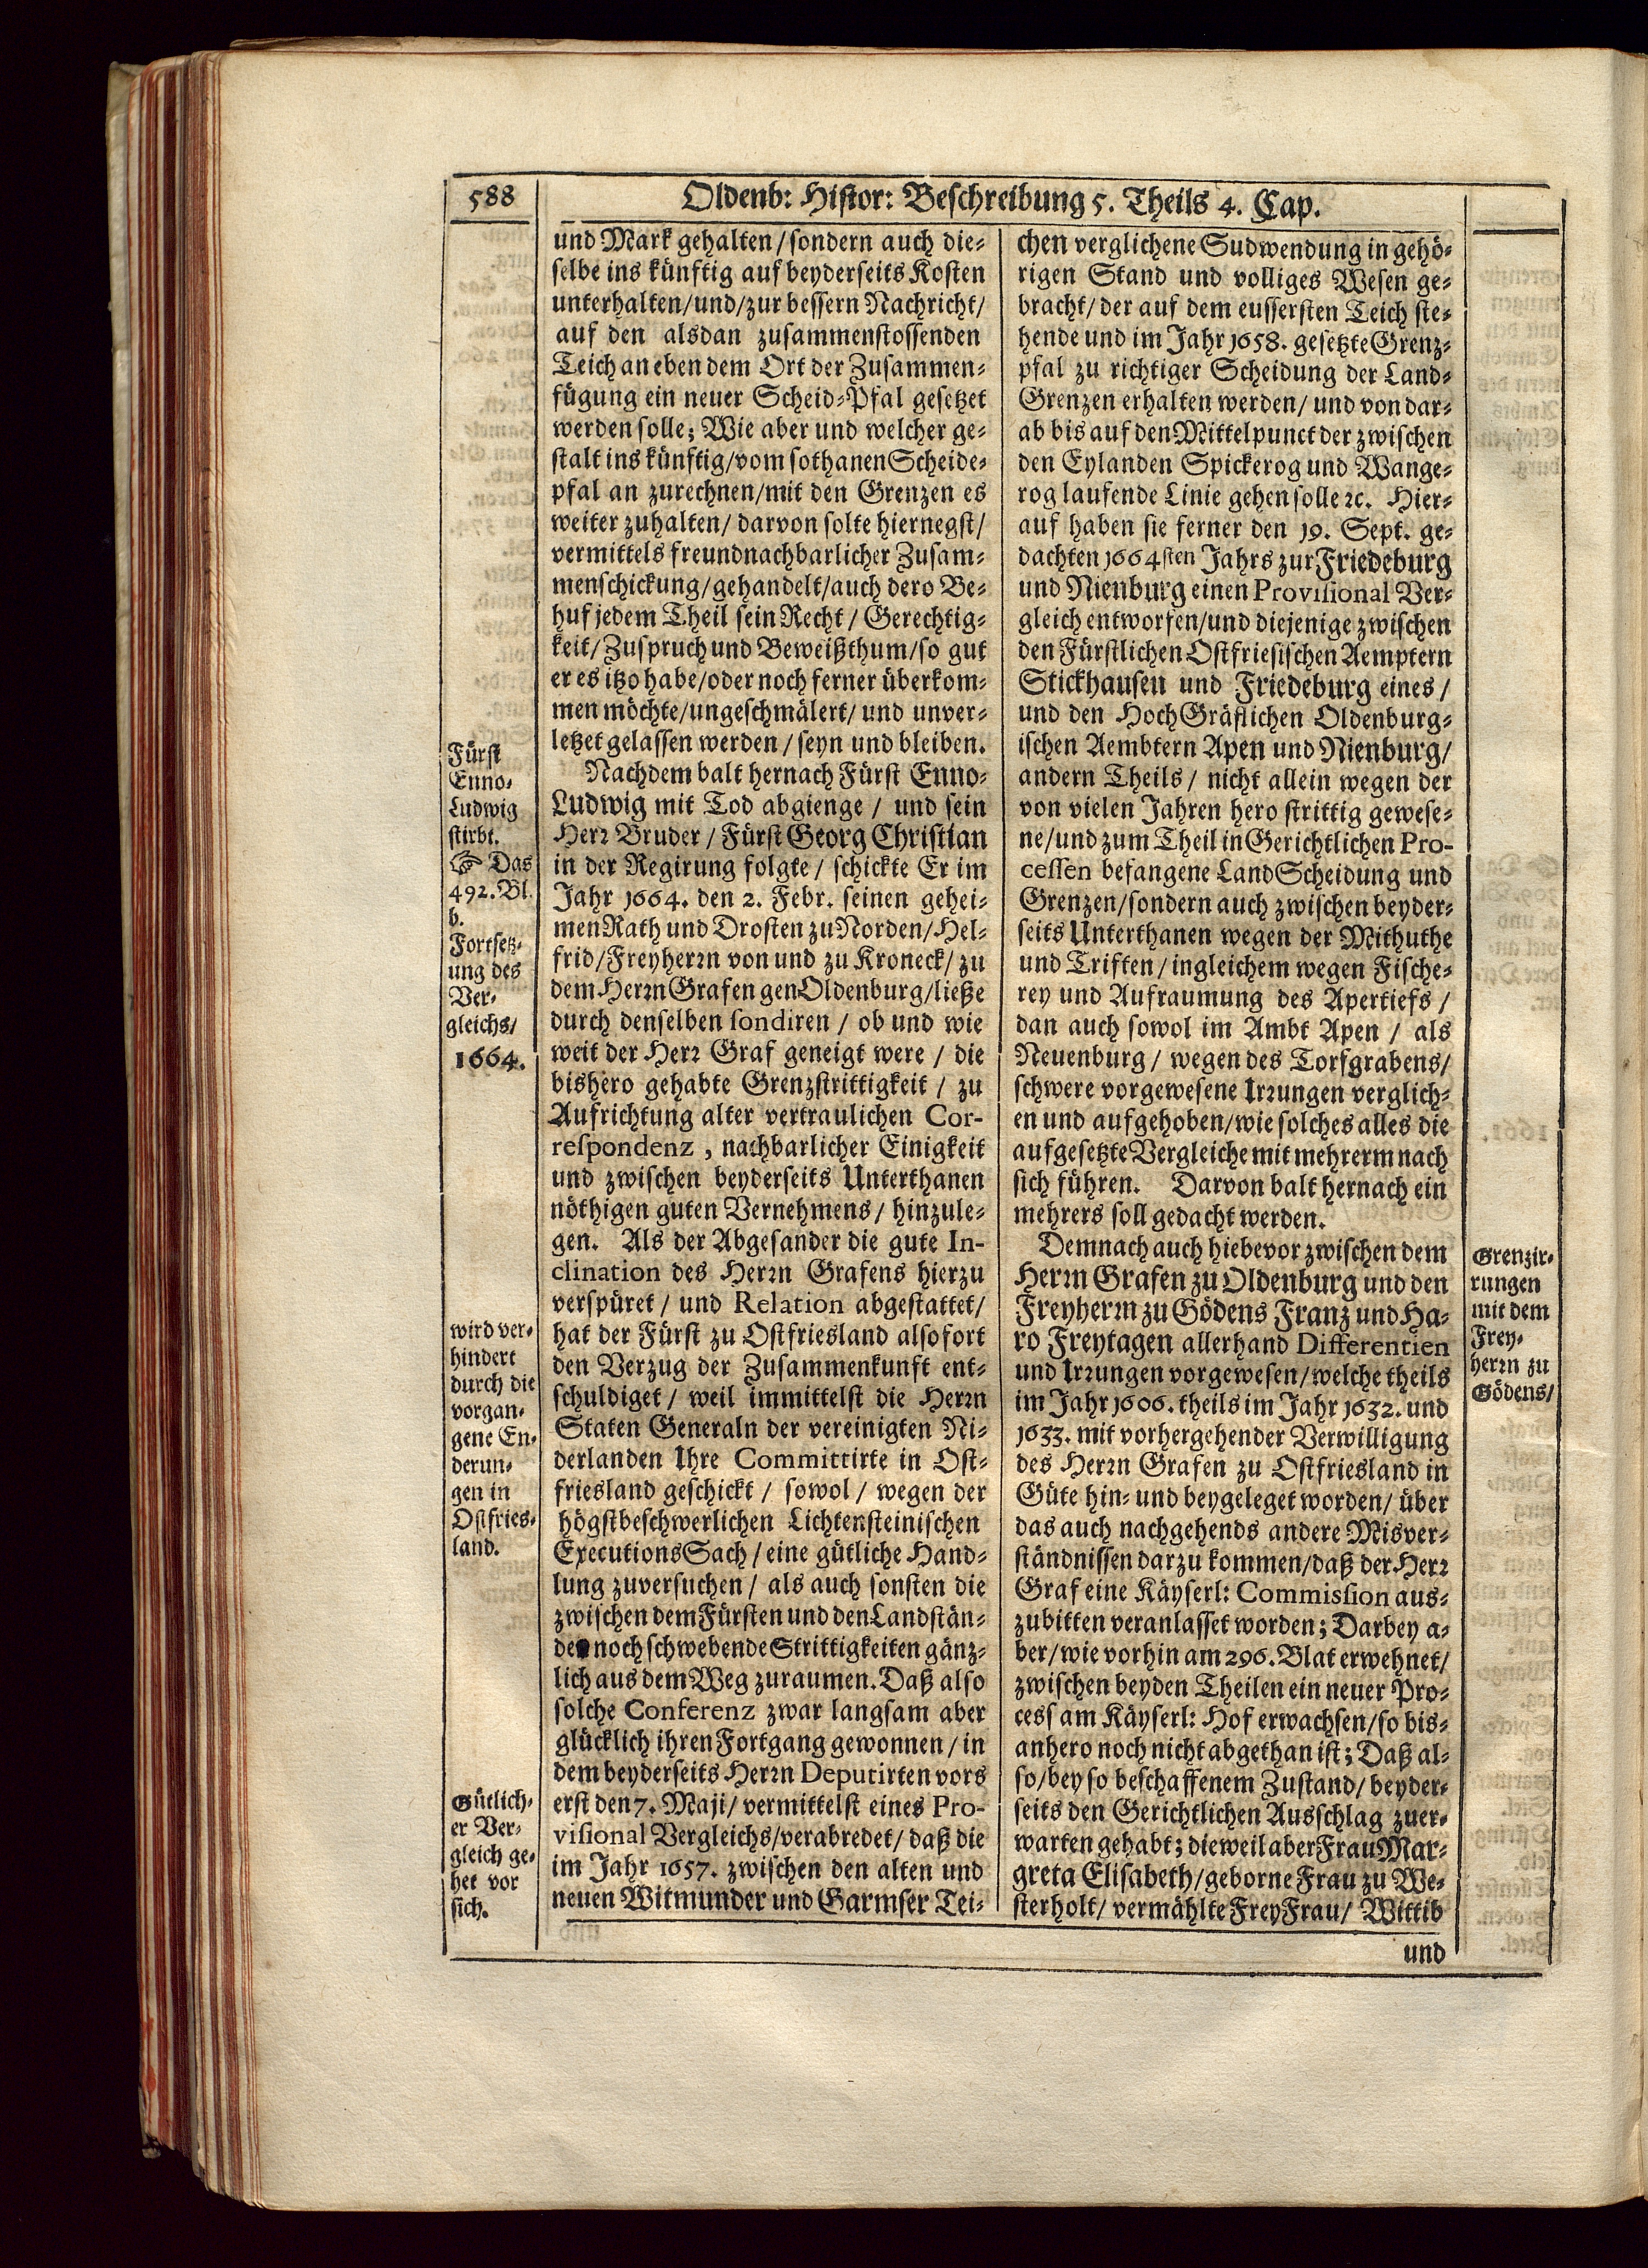 588
Oldenb: Histor: Beschreibung 5. Theils 4. Cap.
und Mark gehalten/sondern auch die-
selbe ins künftig auf beyderseits Kosten
unterhalten/und/zur bessern Nachricht/
auf den alsdan zusammenstossenden
Teich an eben dem Ort der Zusammen-
fügung ein neuer Scheid-Pfal gesetzet
werden solle; Wie aber und welcher ge-
stalt ins künftig/vom sothanen Scheide-
pfal an zurechnen/mit den Grenzen es
weiter zuhalten/ darvon solte hiernegst/
vermittels freundnachbarlicher Zusam-
menschickung/gehandelt/auch dero Be-
huf jedem Theil sein Recht / Gerechtig-
keit/ Zuspruch und Beweißthum/so gut
er es itzo habe/oder noch ferner überkom-
men möchte/ungeschmälert/ und unver-
letzet gelassen werden / seyn und bleiben.
Nachdem balt hernach Fürst Enno-
Ludwig mit Tod abgienge / und sein
Herr Bruder / Fürst Georg Christian
in der Regirung folgte / schickte Er im
Jahr 1664. den 2. Febr. seinen gehei-
men Rath und Drosten zu Norden/Hel-
frid/Freyherrn von und zu Kroneck/ zu
dem Herrn Grafen gen Oldenburg/ließe
durch denselben sondiren / ob und wie
weit der Herr Graf geneigt were / die
bishero gehabte Grenzstrittigkeit / zu
Aufrichtung alter vertraulichen Cor-
respondenz, nachbarlicher Einigkeit
und zwischen beyderseits Unterthanen
nöthigen guten Vernehmens/ hinzule-
gen. Als der Abgesander die gute In-
clination des Herrn Grafens hierzu
verspüret / und Relation abgestattet/
hat der Fürst zu Ostfriesland alsofort
den Verzug der Zusammenkunft ent-
schuldiget / weil immittelst die Herrn
Staten Generaln der vereinigten Ni-
derlanden Ihre Committirte in Ost-
friesland geschickt / sowol / wegen der
högstbeschwerlichen Lichtensteinischen
Executions Sach / eine gütliche Hand-
lung zuversuchen / als auch sonsten die
zwischen dem Fürsten und den Landstän-
den noch schwebende Strittigkeiten gänz-
lich aus dem Weg zuraumen. Daß also
solche Conferenz zwar langsam aber
glücklich ihren Fortgang gewonnen / in
dem beyderseits Herrn Deputirten vors
erst den 7. Maji/ vermittelst eines Pro-
visional Vergleichs/verabredet/ daß die
im Jahr 1657. zwischen den alten und
neuen Witmunder und Garmser Tei-
Fürst
Enno-
Ludwig
stirbt.
☞ Das
492. Bl.
b.
Fortsetz-
ung des
Ver-
gleichs/
1664.
wird ver-
hindert
durch die
vorgan-
gene En-
derun-
gen in
Ostfries-
land.
Gütlich-
er Ver-
gleich ge-
het vor
sich.
chen verglichene Sudwendung in gehö-
rigen Stand und volliges Wesen ge-
bracht/ der auf dem eussersten Teich ste-
hende und im Jahr 1658. gesetzte Grenz-
pfal zu richtiger Scheidung der Land-
Grenzen erhalten werden/ und von dar-
ab bis auf den Mittelpunct der zwischen
den Eylanden Spickerog und Wange-
rog laufende Linie gehen solle ꝛc. Hier-
auf haben sie ferner den 19. Sept. ge-
dachten 1664sten Jahrs zur Friedeburg
und Nienburg einen Provisional Ver-
gleich entworfen/und diejenige zwischen
den Fürstlichen Ostfriesischen Aemptern
Stickhausen und Friedeburg eines /
und den HochGräflichen Oldenburg-
ischen Aembtern Apen und Nienburg/
andern Theils / nicht allein wegen der
von vielen Jahren hero strittig gewese-
ne/und zum Theil in Gerichtlichen Pro-
cessen befangene LandScheidung und
Grenzen/sondern auch zwischen beyder-
seits Unterthanen wegen der Mithuthe
und Triften / ingleichem wegen Fische-
rey und Aufraumung des Apertiefs /
dan auch sowol im Ambt Apen / als
Neuenburg / wegen des Torfgrabens/
schwere vorgewesene Irrungen verglich-
en und aufgehoben/wie solches alles die
aufgesetzte Vergleiche mit mehrerm nach
sich führen. Darvon balt hernach ein
mehrers soll gedacht werden.
Demnach auch hiebevor zwischen dem
Herrn Grafen zu Oldenburg und den
Freyherrn zu Gödens Franz und Ha-
ro Freytagen allerhand Differentien
und Irrungen vorgewesen/welche theils
im Jahr 1606. theils im Jahr 1632. und
1633. mit vorhergehender Verwilligung
des Herrn Grafen zu Ostfriesland in
Güte hin- und beygeleget worden/ über
das auch nachgehends andere Misver-
ständnissen darzu kommen/daß der Herr
Graf eine Käyserl: Commission aus-
zubitten veranlasset worden; Darbey a-
ber/wie vorhin am 296. Blat erwehnet/
zwischen beyden Theilen ein neuer Pro-
cess am Käyserl: Hof erwachsen/so bis-
anhero noch nicht abgethan ist; Daß al-
so/bey so beschaffenem Zustand/ beyder-
seits den Gerichtlichen Ausschlag zuer-
warten gehabt; dieweil aber Frau Mar-
greta Elisabeth/geborne Frau zu We-
sterholt/ vermählte FreyFrau/ Wittib
und
Grenzir-
rungen
mit dem
Frey-
herrn zu
Gödens/